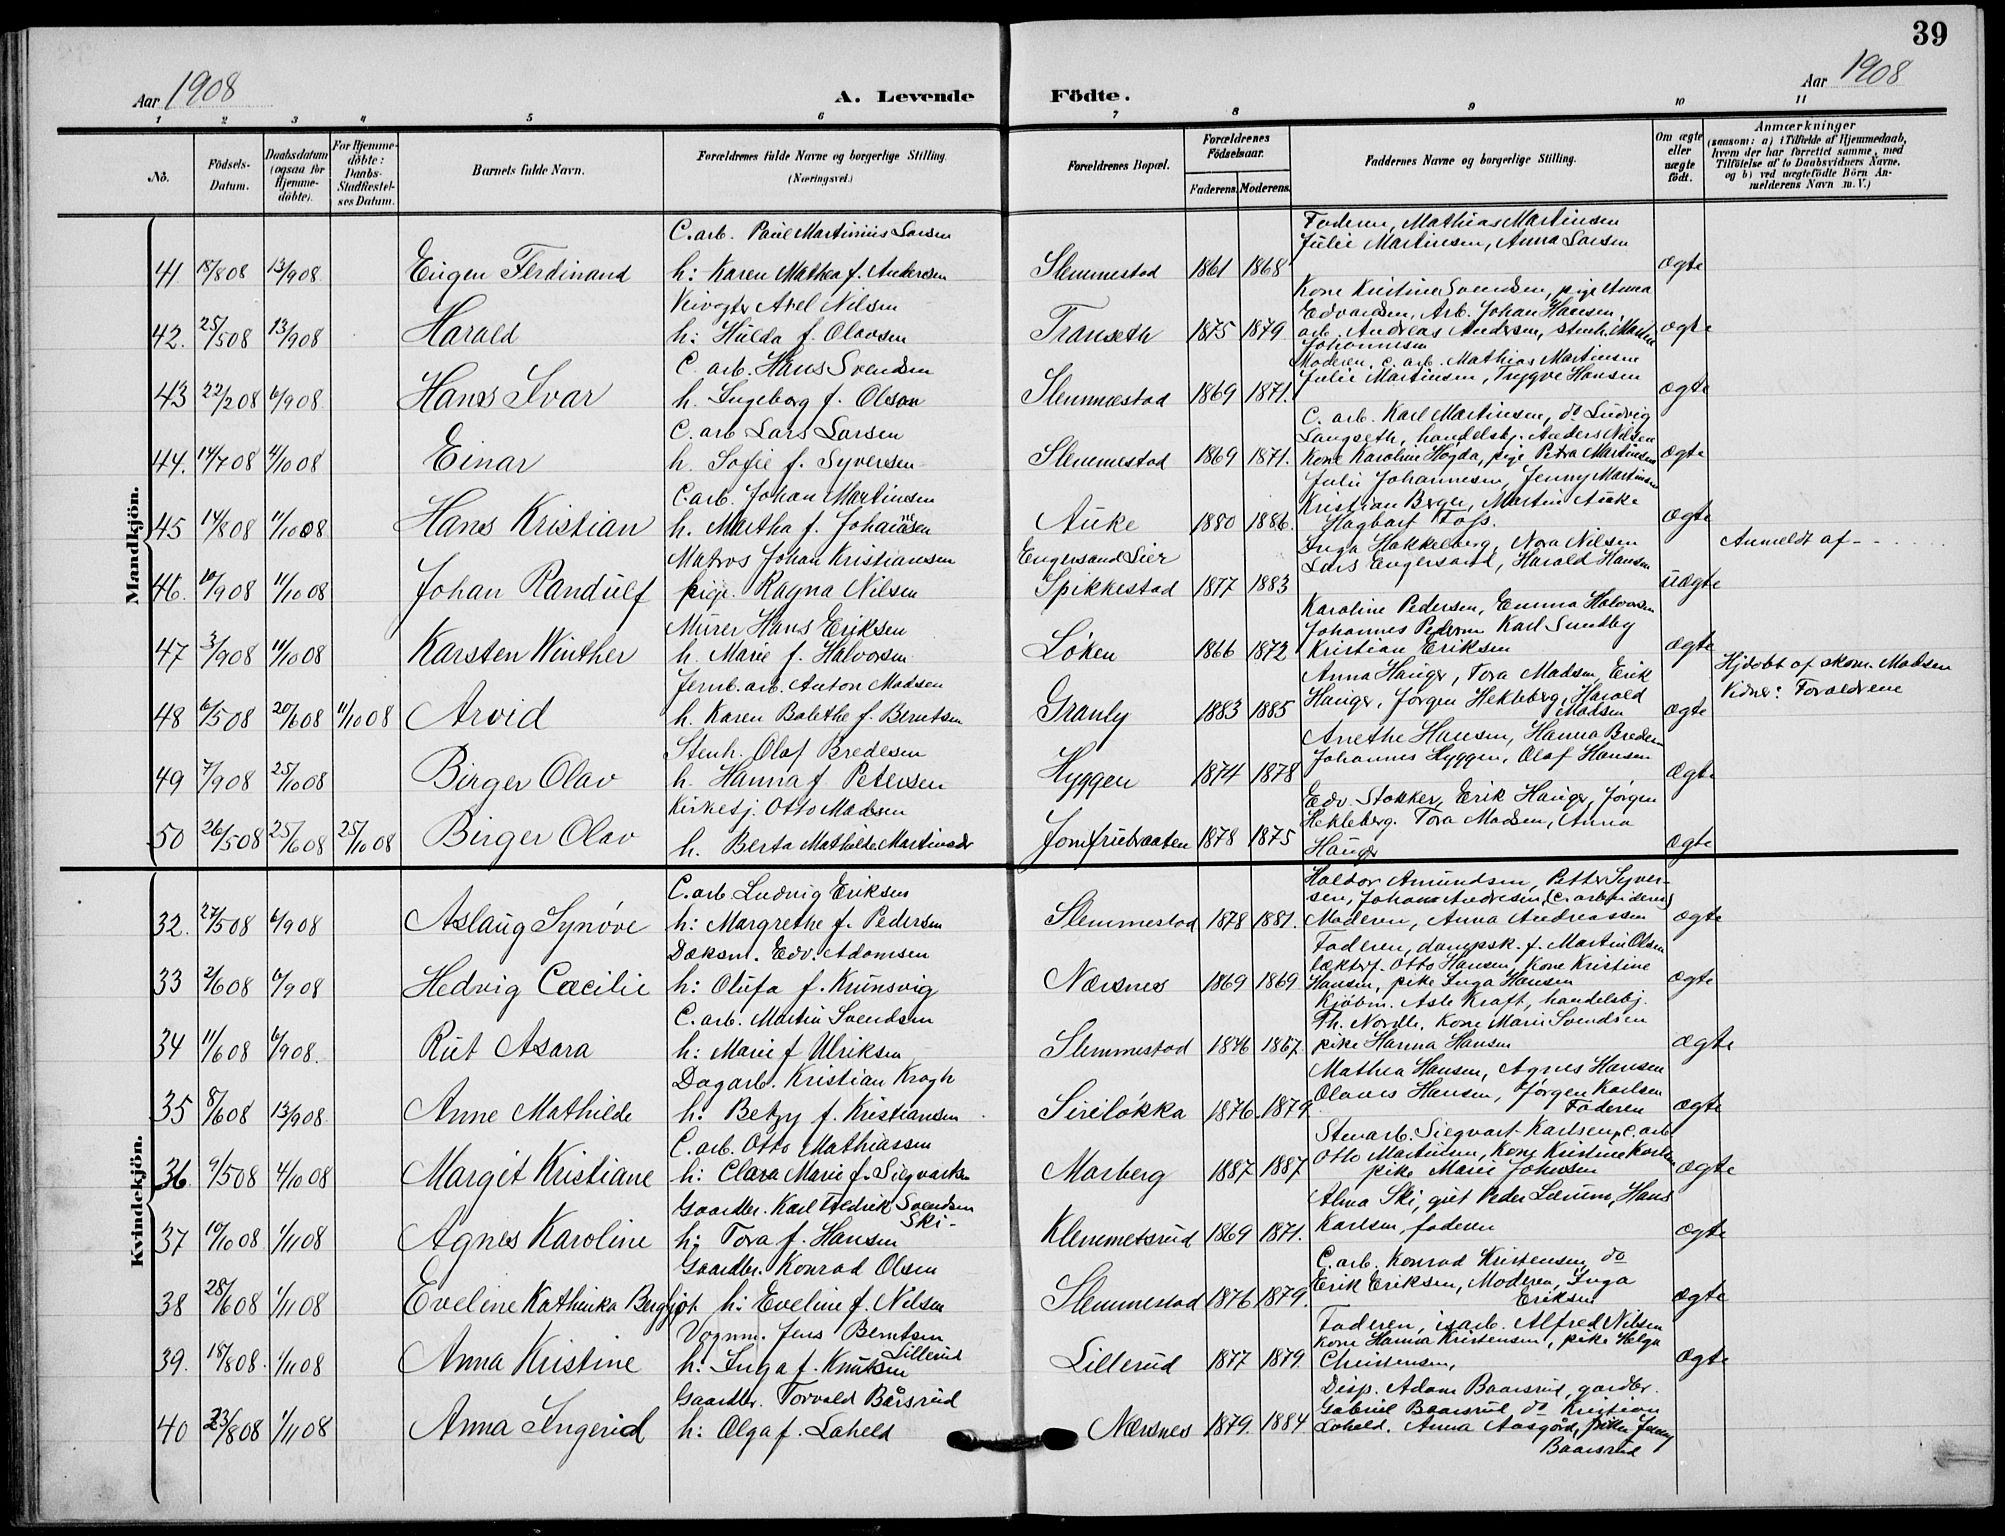 39
Aar 1908
A. Levende Födte.
Aar 1908
1 2 3 4 5 6 7 8 9 10 11
No. Födsels-Datum. Daabsdatum (ogsaa for Hjemmedöbte). For Hjemmedöbte: Daabs-Stadfæstelses Datum. Barnets fulde Navn. Forældrenes fulde Navne og borgerlige Stilling. (Næringsvei.) Forældrenes Bopæl. Forældrenes Födselsaar. Faderens. Moderens. Faddernes Navne og borgerlige Stilling. Om ægte eller uægte födt. Anmærkninger (saasom: a) i Tilfælde af Hjemmedaab, hvem der har forrettet samme, med Tilföielse af to Daabsvidners Navne, og b) ved uægtefödte Börn Anmelderens Navn m. V.)
Mandkjön.
C. arb. Paul Martinius Larsen Faderen, Mathias Martinsen
Julie Martinsen, Anna Larsen
41 18/8 08 13/9 08 Eugen Ferdinand h: Karen Mathea f. Andersen Slemmestad 1861 1868 ægte
Veivogter Axel Nilsen Kone Kristine Svendsen, pige Anna
Edvardsen, Arb. Johan Hansen,
42. 25/5 08 13/9 08 Harald h: Hulda f. Olavsen Transeth 1875 1879 arb. Andreas Andersen, stenh. Martin ægte
Johannesen
C. arb. Hans Svendsen Moderen, c. arb. Mathias Martinsen
43 22/2 08 6/9 08 Hans Ivar h. Ingeborg f. Olsen Slemmestad 1869 1871. Julie Martinsen, Trygve Hansen ægte
C. arb Lars Larsen C. arb. Karl Martinsen, do Ludvig
Langseth, handelsbj. Anders Nilsen
44. 14/7 08 4/10 08 Einar h. Sofie f. Syversen Slemmestad 1869 1871. Kone Karoline Högda, pige Petra Martinsen ægte
C. arb. Johan Martinsen Julie Johannesen, Jenny Martinsen
Kristian Berger, Martin Auke
45 14/8 08 11/10 08 Hans Kristian h. Martha f. Johannesen Auke 1880 1886. Hagbart Foss. ægte
Matros Johan Kristiansen Engersand Lier Inga Hakkelberg, Nora Nilsen Anmeldt af - - . . . .
46. 10/9 08 11/10 08 Johan Randulf pige. Ragna Nilsen Spikkestad 1877 1883 Lars Engersand, Harald Hansen uægte
Murer Hans Eriksen Karoline Pedersen, Emma Halvorsen
Johannes Pedersen Karl Sundby
47 3/9 08 11/10 08 Karsten Winther h. Marie f. Halvorsen Løken 1866 1872 Kristian Eriksen ægte
Jernb. arb. Anton Madsen Anna Hauger, Tora Madsen, Erik Hjdøbt af skom. Madsen
48 6/5 08 20/6 08 11/10 08 Arvid h. Karen Bolethe f. Berntsen Granly 1883 1885 Hauger, Jørgen Hekleberg, Harald Madsen ægte Vidner: Forældrene
Stenh. Olaf Bredesen Anethe Hansen, Hanna Bredesen
49 7/9 08 25/10 08 Birger Olav h. Hanna f Petersen Hyggen 1874 1878 Johannes Hyggen, Olaf Hansen ægte
Kirkesj. Otto Madsen Edv. Stokker, Erik Hauger, Jørgen
Hekleberg. Tora Madsen, Anna
50 26/5 08 25/6 08 25/10 08 Birger Olav h. Berta Mathilde Martinsdr Jomfrubraaten 1878 1875 Hauger ægte
Kvindekjön.
C. arb Ludvig Eriksen Haldor Amundsen, Petter Syver-
sen, Johan Andresen, (C. arbeidere)
32. 27/5 08 6/9 08 Aslaug Synøve h: Margrethe f. Pedersen Slemmestad 1878 1881. Moderen, Anna Andreassen ægte
Doksm. Edv. Adamsen Faderen, dampsk. f. Martin Olsen
Otto Hansen, Kone Kristine
33 2/6 08 6/9 08 Hedvig Cæcilie h: Olufa f. Krunsvig Nærsnes 1869 1869 Hansen, pike Inga Hansen ægte
C. arb. Martin Svendsen Kjøbm. Asle Kraft, handelsbj.
Th. Nordli, Kone Marie Svendsen
34 11/6 08 6/9 08. Rut Asora h: Marie f Ulriksen Slemmestad 1867. pike Hanna Hansen ægte
Dagarb. Kristian Krogh Mathea Hansen, Agnes Hansen
35 8/6 08 13/9 08 Anne Mathilde h: Betzy f. Kristiansen Siriløkka 1876. 1879 Olaves Hansen, Jørgen Karlsen Faderen ægte
C. arb. Otto Mathiassen Stenarb. Siegvart Karlsen, c. arb
Otto Martinsen, Kone Kristine Karlsen
36 9/5 08 4/10 08 Margit Kristiane h: Clara Marie f. Sigvartsen Morberg 1887 1887 pike Marie Johnsen ægte
Gaardbr. Karl Fredrik Svendsen Ski - Alma Ski, gut Peder Lærum, Hans
37 10/10 08 1/11 08 Agnes Karoline h: Tora f. Hansen Klemmetsrud 1869 1871. Karlsen, faderen ægte
Gaardbr. Konrad Olsen C. arb. Konrad Kristensen, do
38 28/6 08 1/11 08 Eveline Kathinka Bergljot h: Eveline f. Nilsen Slemmestad 1876 1879. Erik Eriksen, Moderen, Inga Eriksen ægte
Vognm. Jens Berntsen Lillerud Faderen, isarb. Alfred Nilsen
Kone Hanna Kristensen, pike Helga
39. 18/8 08. 1/11 08 Anna Kristine h: Inga f. Knutsen Lillerud 1877 1879 Christensen, ægte
Gaardbr. Torvald Bårsrud Disp. Adam Baarsrud, gardbr.
Gabriel Baarsrud do Kristian
40 23/8 08 1/11 08 Anna Ingerid h: Olga f. Laheld Nærsnes 1879. 1884 Laheld. Anna Aasgård, pike Jenny
Baarsrud